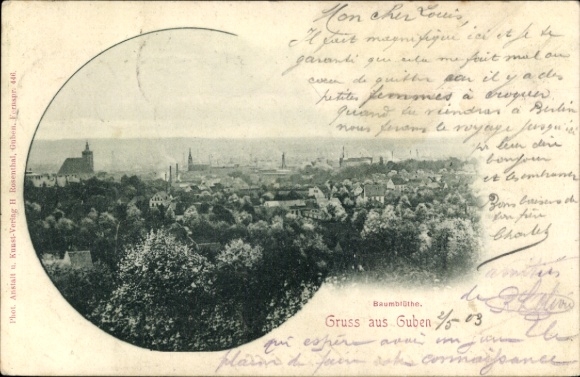 Mon cher Louis,
Il fait magnifique ici et je te
garantis que cela me fait mal au
cœur de quitter car il y a des
petites femmes à croquer
quand tu viendras à Berlin
nous ferons le voyage jusqu'ici
leur dire
bonjour
et les embrasser
Bons baisers de
ton frère
Charlot
Phot. Anstalt u. Kunst-Verlag H. Rosenthal, Guben. 440.
Baumblüthe.
Gruss aus Guben 2/5 03
amitiés
de
qui espère avoir un jour le
plaisir de faire votre connaissance